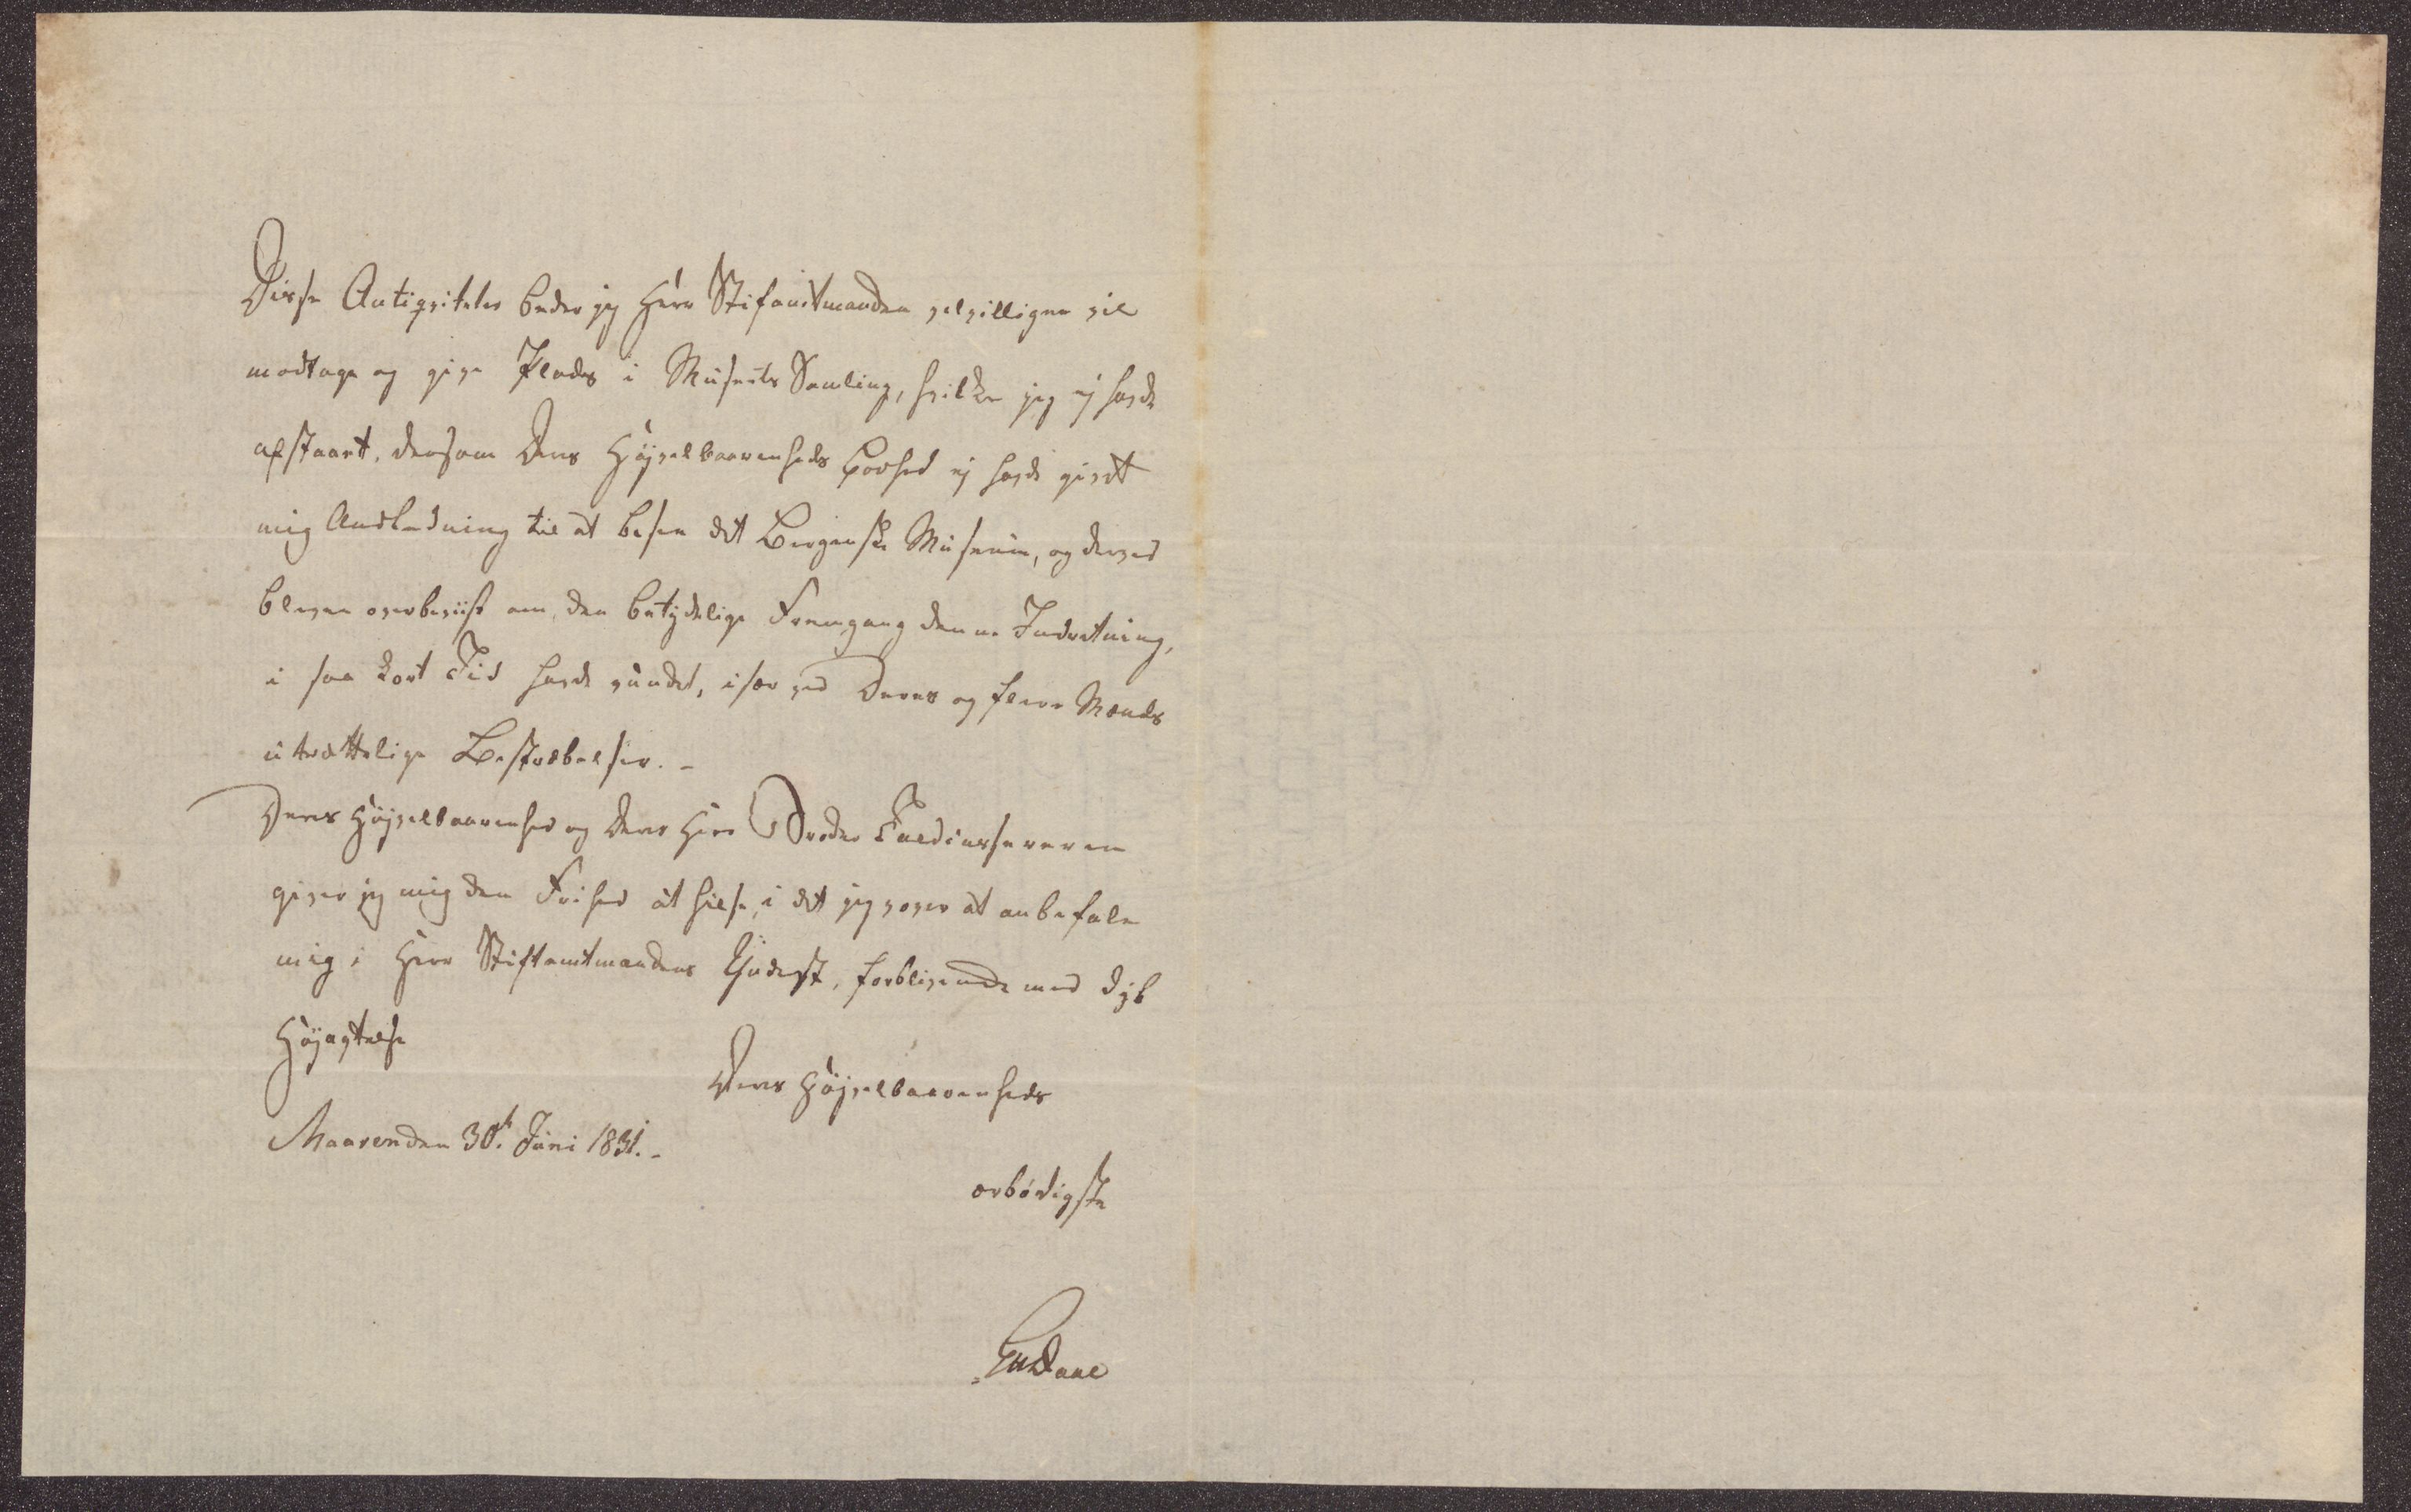 Disse Antiqviteter beder jeg Herr Stifamtmanden velvilligen vil
modtage og give Plads i Museets Samling, hvilke jeg ej havde
afstaaet, dersom Deres Højvelbaarenheds Godhed ej havde givet
mig Andledning til at besee det Bergenske Museum, og derved
bleven overbeviist om, den betydelige Fremgang denne Indretning,
i saa kort Tid havde vundet, især ved Deres og flere Mænds
utrættelige Bestræbelser. -
Deres Højvelbaarenhed og Deres Herr Broder
giver jeg mig den Frihed at hilse, i det jeg vover at anbefale
mig i Herr Stiftamtmandens Yndest, forblivende med dyb
Højagtelse
Deres Højvelbaarenheds
Maaren den 30t. Juni 1831. -
ærbødigste
Daae